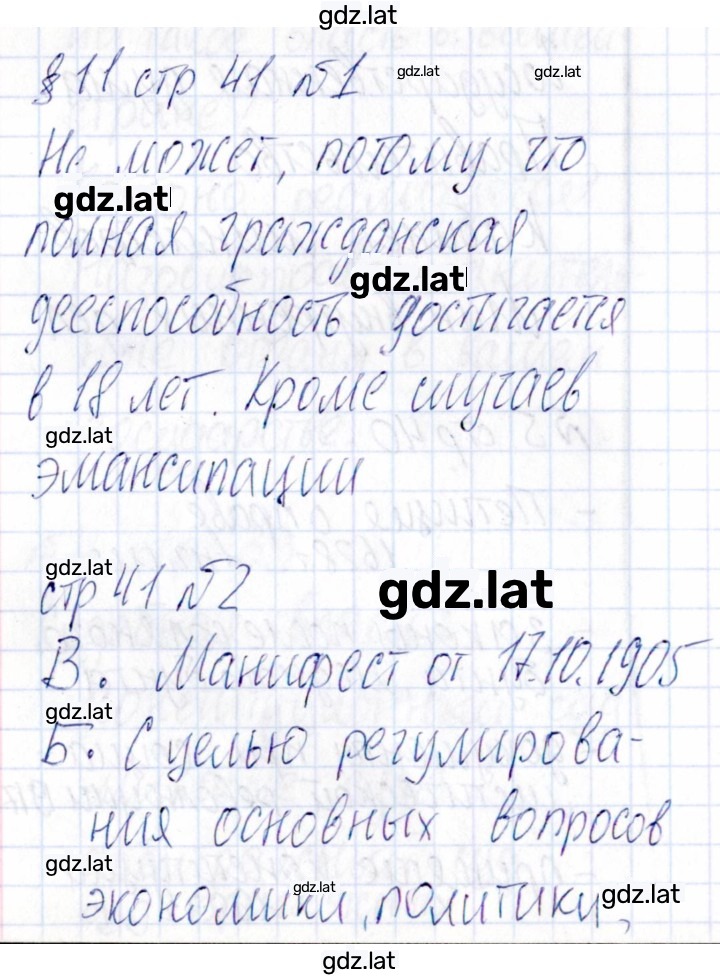 gdz.lat
§ 11 стр 41 №1
gdz.lat
gdz.lat
Не может, потому что
gdz.lat
полная гражданская
gdz.lat
дееспособность достигается
в 18 лет. Кроме случаев
gdz.lat
эмансипации
gdz.lat
стр 41 №2
gdz.lat
В. Манифест от 17.10.1905
gdz.lat
Б. С целью регулирова-
ния основных вопросов
gdz.lat
gdz.lat
gdz.lat
экономики, политики,
gdz.lat